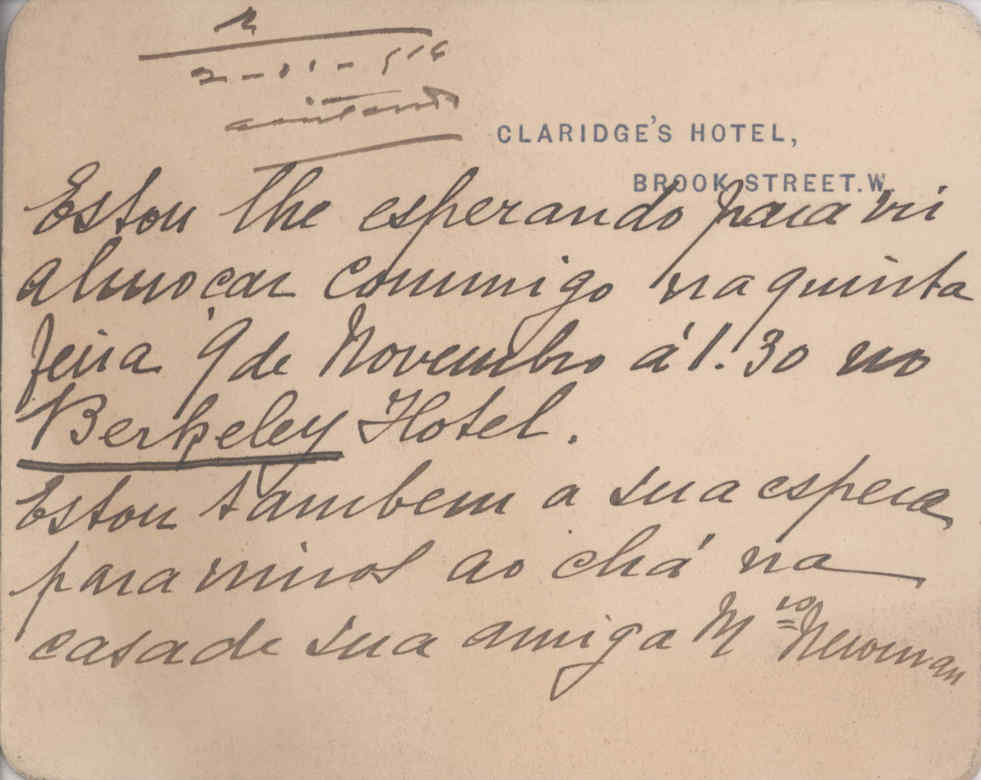 2-11-516
CLARIDGE'S HOTEL,
BROOK STREET. W.
Estou lhe esperando para vir
almoçar commigo na quinta
feira 9 de Novembro á 1.30 no
Berkeley Hotel.
Estou tambem a sua espera
para irmos ao chá na
casa de sua amiga M<sup>rs</sup> Newman